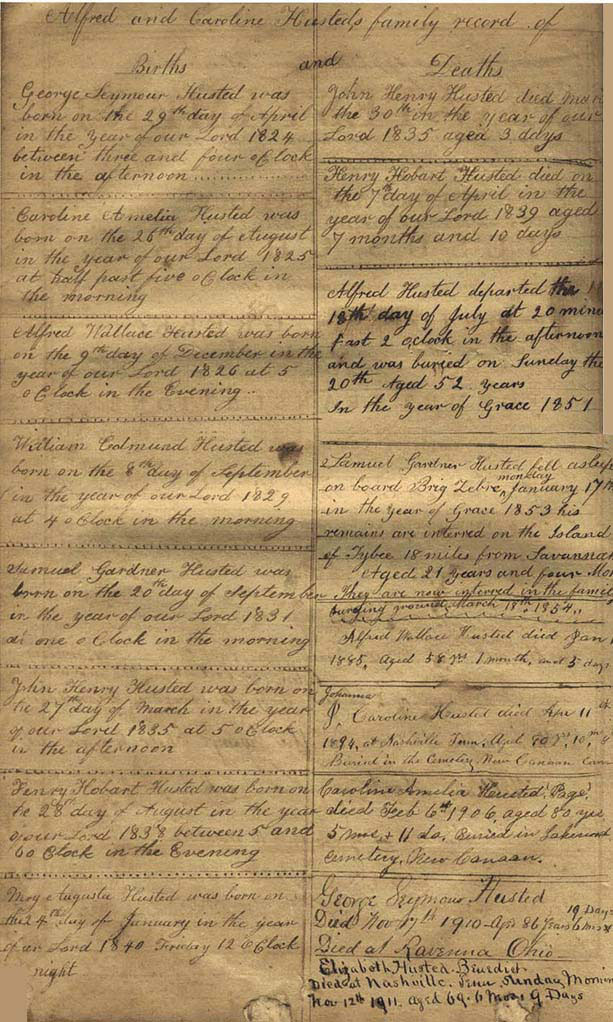 Alfred and Caroline Husteds family record of
Births
and
George Seymour Husted was
born on the 29th day of April
in the Year of our Lord 1824
between three and four oClock
in the afternoon
Caroline Amelia Husted was
born on the 26th day of August
in the year of our Lord 1825
at half past five oClock in
the morning
Alfred Wallace Husted was born
on the 9th day of December in the
year of our Lord 1826 at 5
oClock in the Evening
William Edmund Husted was
born on the 8th day of September
in the year of our Lord 1829
at 4 oClock in the morning
Samuel Gardner Husted was
born on the 20th day of September
in the year of our Lord 1831
at one oClock in the morning
John Henry Husted was born on
the 27th day of March in the year
of our Lord 1835 at 5 oClock
in the afternoon
Henry Hobart Husted was born on
the 28th day of August in the year
of our Lord 1838 between 5 and
6 oClock in the Evening
Augusta Husted was born on
the 24th day of January in the year
of our Lord 1840 12 oClock
night
Deaths
John Henry Husted died Mar
the 30th in the year of our
Lord 1835 aged 3 days
Henry Hobart Husted died on
the 7th day of April in the
year of our Lord 1839 aged
7 months and 10 days
Alfred Husted departed this
18th day of July at 20 minu
Past 2 oclock in the afternoon
and was buried on Sunday the
20th Aged 52 years
In the year of Grace 1851
Samuel Gardner Husted fell asleep
monday
on board Brig Zebra, January 17th
in the Year of Grace 1853 his
remains are interred on the Island
of Tybee 18 miles from Savannah
Aged 21 Years and four Mo
They are now interred in the famil
burying ground March 18th 1854
Alfred Wallace Husted died Jan
1885, Aged 58 yrs 1 month, and 5 days
Johanna
J. Caroline Husted died Apr 11th
1894, at Nashville Tenn, Aged 90 yr, 10 mo
Buried in the Cemetery, New Canaan, Conn
Caroline Amelia Husted
died Feb 6th 1906, aged 80 yrs
5 mos, + 11 da. Buried in Lakeview
Cemetery, New Canaan.
George Seymour Husted
19 Days
Died Nov 17th 1910 - Age 86 Years 6 mos
Died at Ravenna Ohio
Elizabeth Husted Benedict
Died at Nashville, Tenn, Sunday, Mornin
Nov 12th 1911. aged 69. 6 Mos. 9 Days